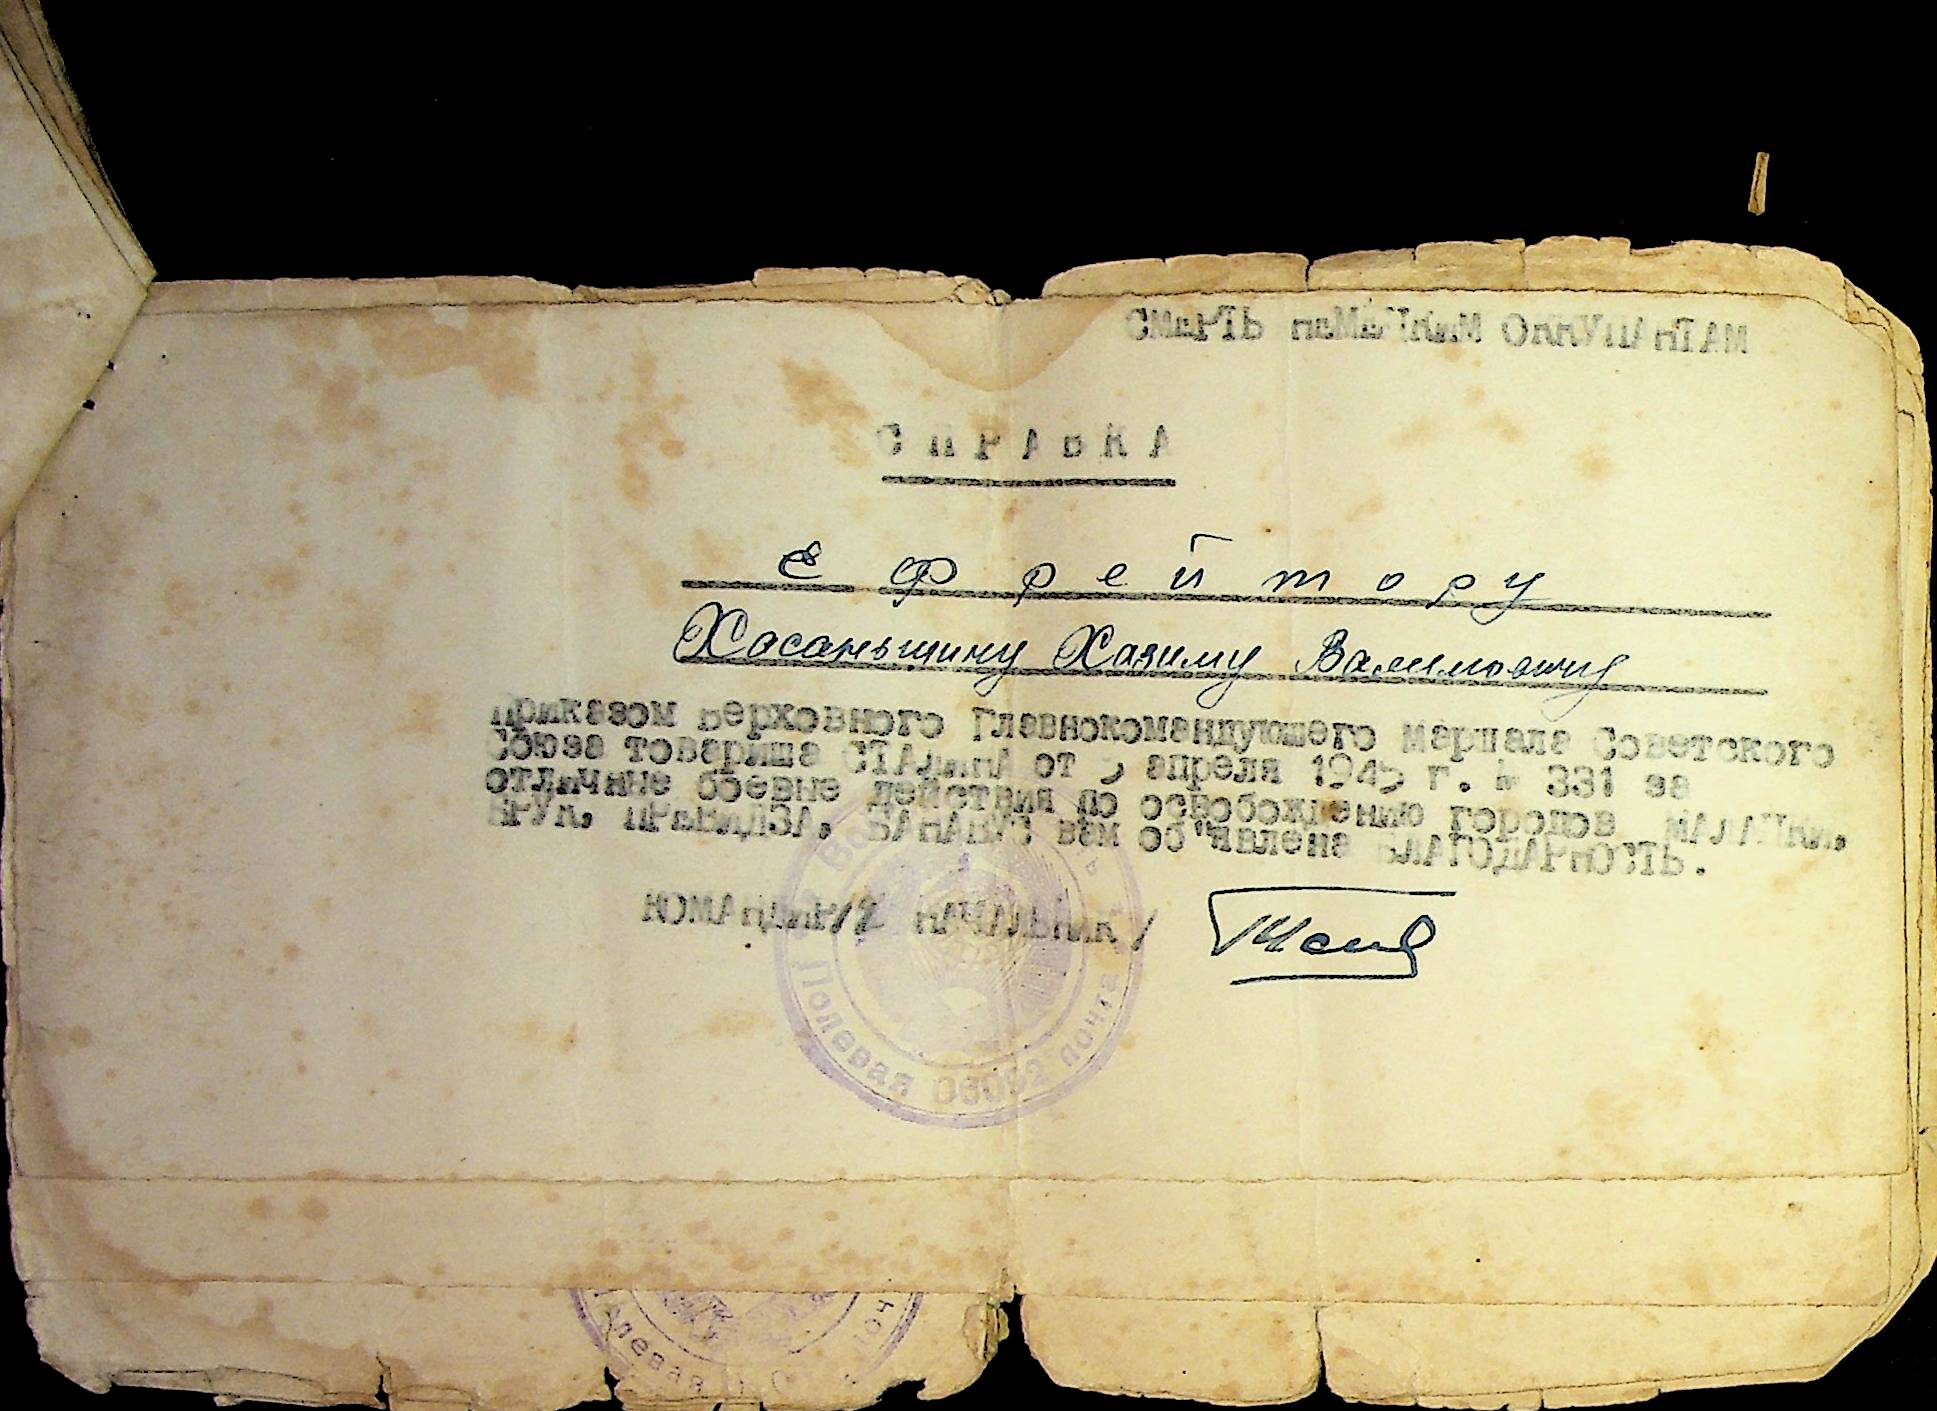 СМЕРТЬ НЕМЕЦКИМ ОККУПАНТАМ
СПРАВКА
Ефрейтору
Хасаньшину Хазиму Валимовичу
Приказом Верховного Главнокомандующего Маршала Советского
Союза товарища СТАЛИНА от 5 апреля 1945 г. № 331 за
отличные боевые действия по освобождению городов МАЛАЦКИ,
БРУК, ПРЕВИДЗА, БАНАВЦЕ вам об"явлена БЛАГОДАРНОСТЬ.
КОМАНДИР/НАЧАЛЬНИК/
Полевая почта
левая поч